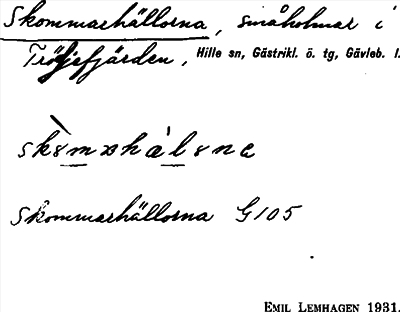 Skommarhällorna, småholmar i
Trösjefjärden, Hille sn, Gästrikl. ö. tg, Gävleb. l.
Skommarhällorna G105
EMIL LEMHAGEN 1931.